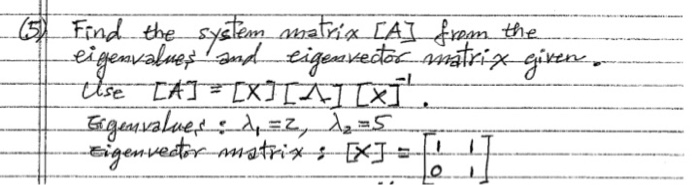 (5) Find the system matrix [A] from the
eigenvalues and eigenvector matrix given.
Use [A] = [X][Λ][X]⁻¹.
Eigenvalues : λ₁ = 2, λ₂ = 5
Eigenvector matrix : [X] = [1 1
0 1]